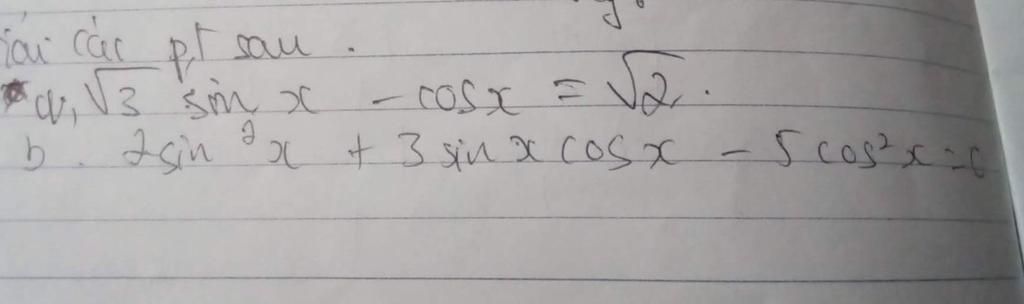 các pt sau.
a, √3 sin x - cosx = √2.
b. 2sin²x + 3 sin x cosx - 5 cos²x =